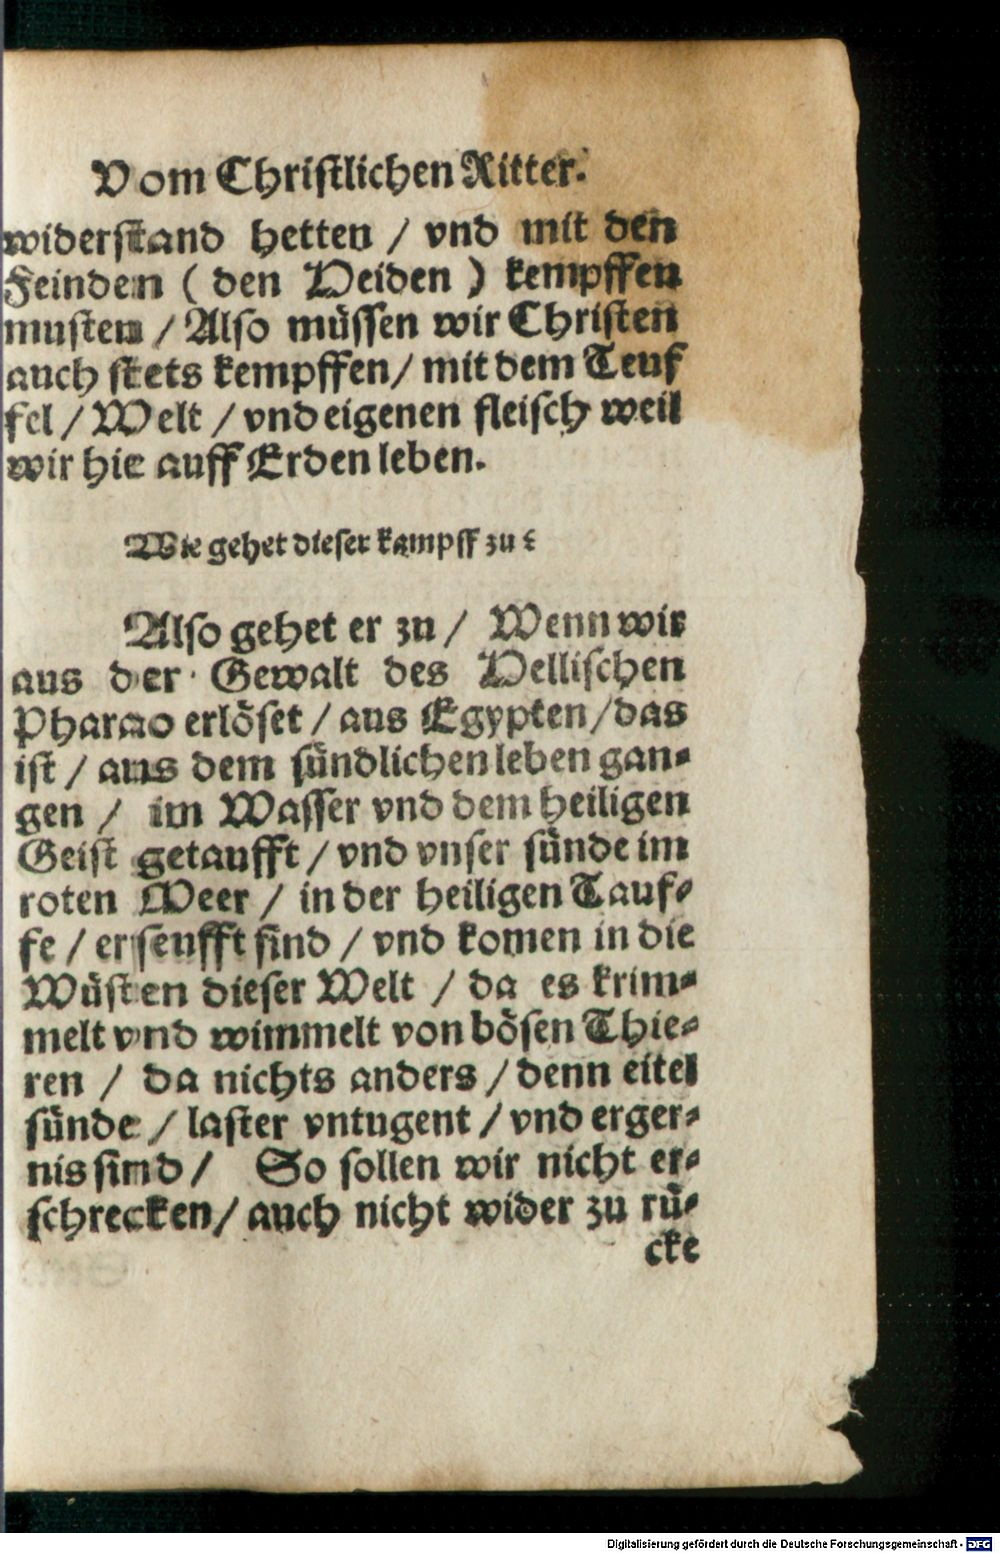 Vom Christlichen Ritter.
widerstand hetten / vnd mit den
Feinden ( den Heiden ) kempffen
musten / Also müssen wir Christen
auch stets kempffen / mit dem Teuf
fel / Welt / vnd eigenen fleisch weil
wir hie auff Erden leben.
Wie gehet dieser kampff zu ?
Also gehet er zu / Wenn wir
aus der Gewalt des Hellischen
Pharao erlöset / aus Egypten / das
ist / aus dem sündlichen leben gan-
gen / im Wasser vnd dem heiligen
Geist getaufft / vnd vnser sünde im
roten Meer / in der heiligen Tauf-
fe / erseufft sind / vnd komen in die
Wüsten dieser Welt / da es krim-
melt vnd wimmelt von bösen Thie-
ren / da nichts anders / denn eitel
sünde / laster vntugent / vnd erger-
nis sind / So sollen wir nicht er-
schrecken / auch nicht wider zu rü-
cke
Digitalisierung gefördert durch die Deutsche Forschungsgemeinschaft - DFG